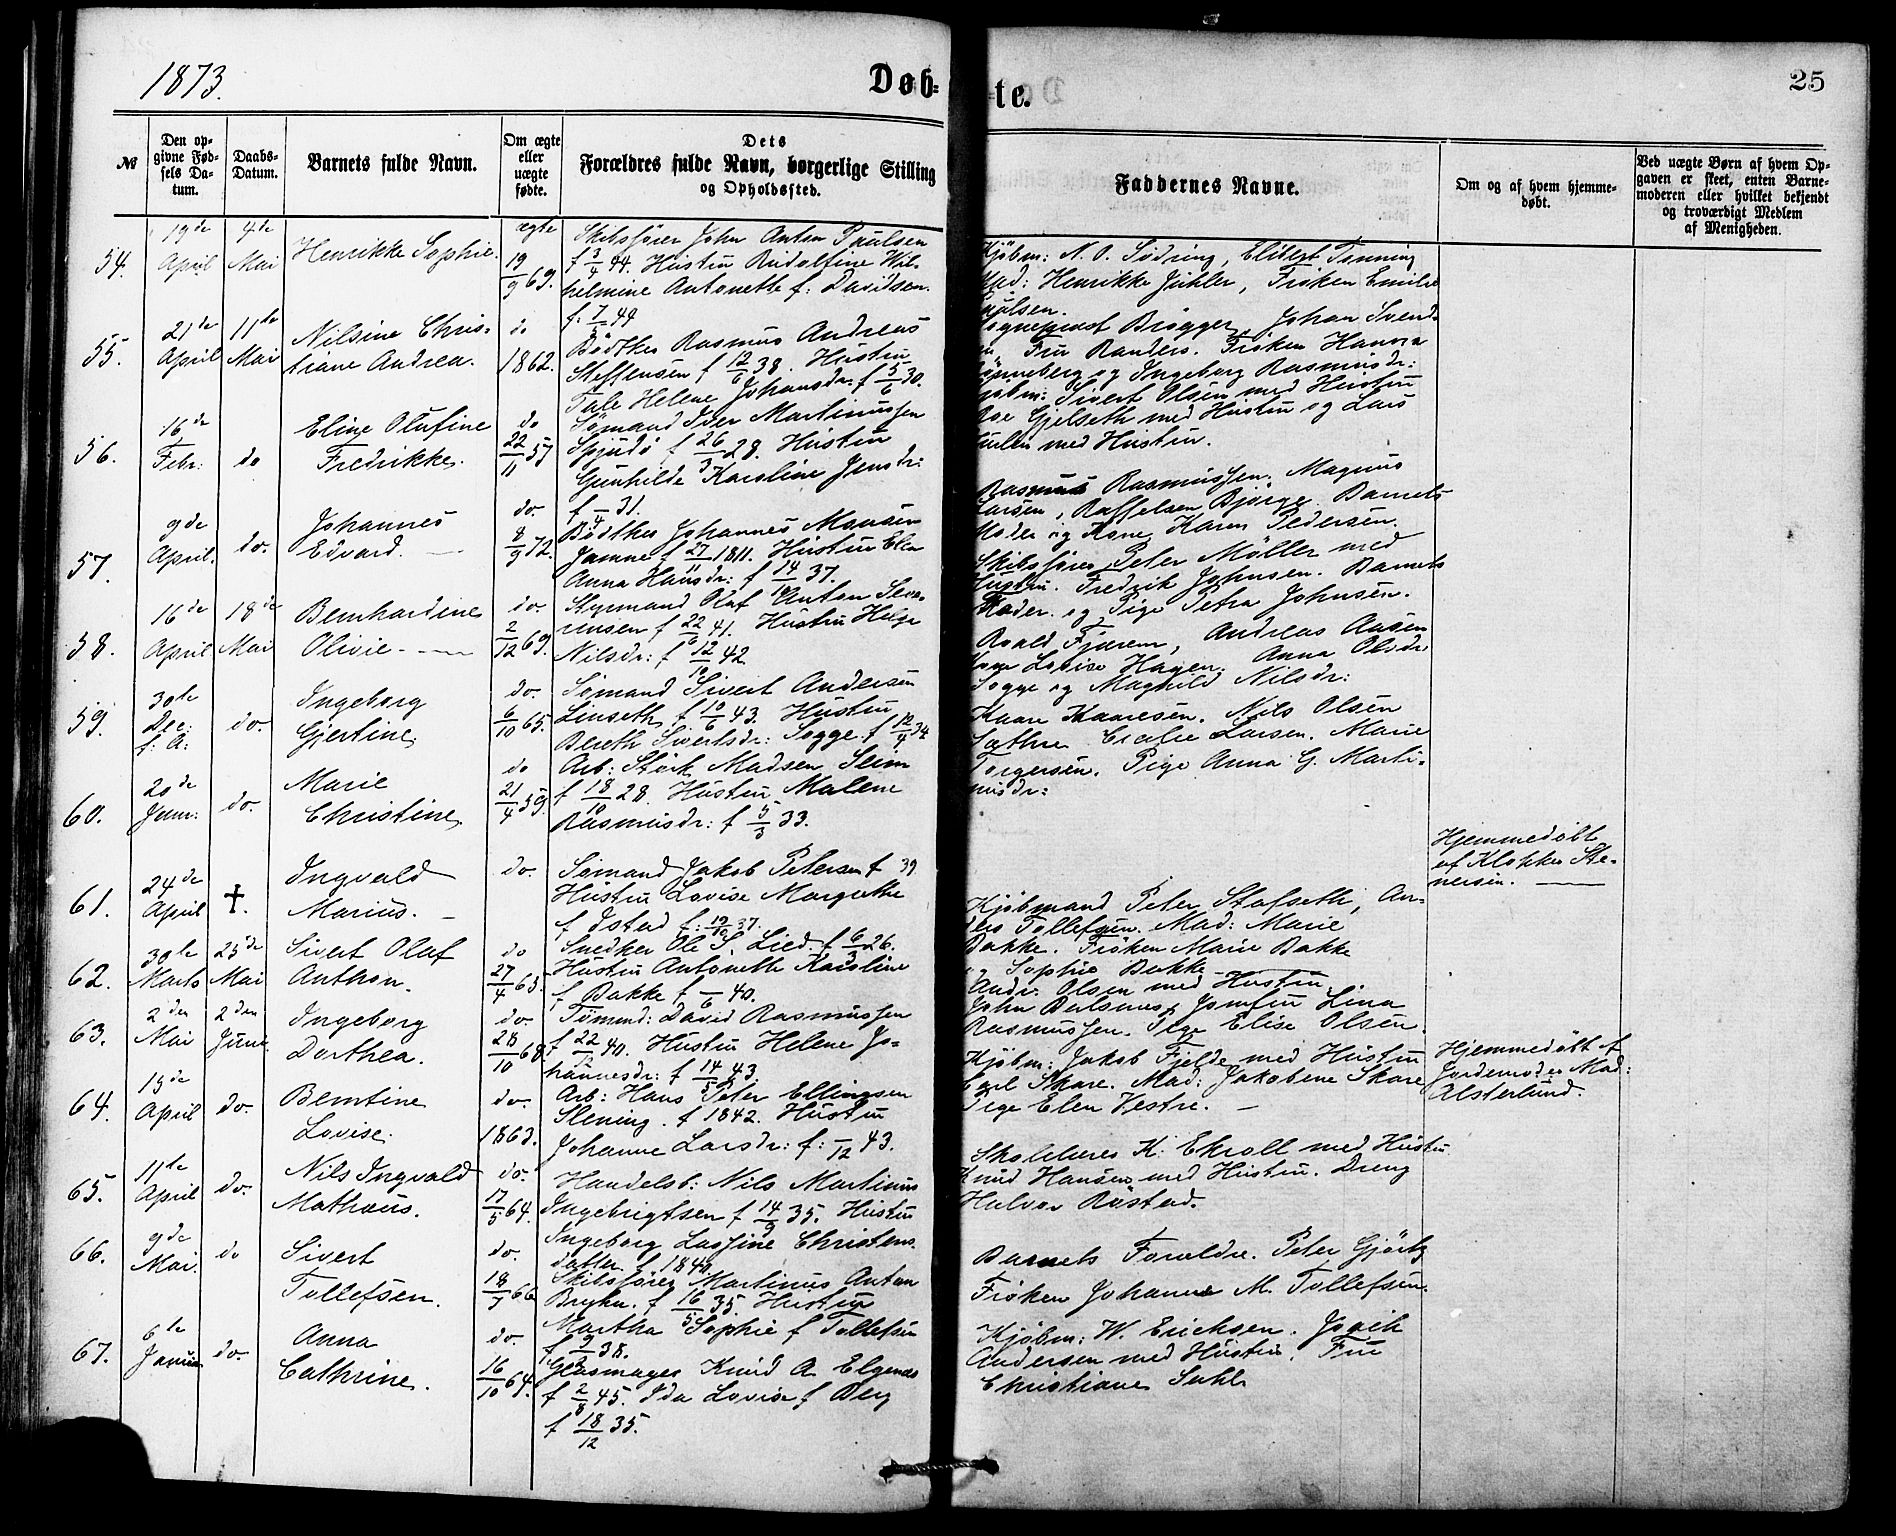 1873.
Døb-
te.
25
№
Den op-
givne Fød-
sels Da-
tum.
Daabs-
Datum.
Barnets fulde Navn.
Om ægte
eller
uægte
fødte.
Dets
Forældres fulde Navn, borgerlige Stilling
og Opholdssted.
Faddernes Navne.
Om og af hvem hjemme-
døbt.
Ved uægte Børn af hvem Op-
gaven er skeet, enten Barne-
moderen eller hvilket bekjendt
og troværdigt Medlem
af Menigheden.
54.
19de
April
4de
Mai
Henrikke Sophie.
ægte
19/9 69.
Skibsfører John Anton Paulsen
f 3/4 44. Hustru Rudolfine Wil-
helmine Antonette f: Davidsen.
f: 7/3 49
Kjøbm: N. O. Sødring, Elibert Tønning
Mad: Henrikke Jühler, Frøken Emilie
55.
21de
April
11te
Mai
Nilsine Chris-
tiane Andrea.
do
1862.
Bødker Rasmus Andreas
Steffensen f 12/6 38. Hustru
Tale Helene Johansdr: f 5/6 30.
Brøgger, Johan Svend-
Fru Randers. Frøken Hanna
Lønneberg og Ingeborg Rasmusdr:
56.
16de
Febr:
do
Eline Olufine
Fredrikke.
do
22/11 57
Sømand Iver Martinussen
f 26/3 28. Hustru
Gunhilde Karoline Jensdr:
f — 31.
Kjøbm: Sivert Olsen med Hustru
Gjelseth med Hustru og Lars
med Hustru.
57.
9de
April.
do.
Johannes
Edvard. —
do.
8/9 72.
Bødker Johannes Monsen
f 27/11 1811. Hustru Elen
Anna Hansdr: f 14/10 37.
Rasmus Rasmussen. Magnus
Larsen, Raffelsen Bjørge. Barnets
Moder og Kone Karen Pedersen.
58.
16de
April
18de
Mai
Bernhardine
Olivie. —
do.
2/12 69.
Styrmand Olaf Anton Seve-
rinsen f 22/6 41. Hustru Helge
Nilsdr: f 12/10 42
Skibsfører Peter Møller med
Hustru. Fredrik Johnsen. Barnets
Fader og Pige Petra Johnsen.
59.
30te
Dec:
f: A:
do.
Ingeborg
Gjertine
do.
6/10 65.
Sømand Sivert Andersen
Linseth f 10/6 43. Hustru
Bereth Sivertsdr: Sogge f 12/4 34
Roald Fjærem, Andreas Aasen
Kone Lovise Hagen. Anna Olsdr:
Sogge og Magnild Nilsdr:
60.
20de
Janr:
do.
Marie
Christine
do
21/4 59.
Arb: Størk Madsen Slim
f 18/10 28. Hustru Malene
Rasmusdr: f 5/3 33.
Kaare Kaaresen. Nils Olsen
Sæthre Cecilie Larsen. Marie
Torgersen. Pige Anna G. Marti-
nusdr:
61.
24de
April
†.
Ingvald
Marius. —
do.
Sømand Jakob Petersen f 39
Hustru Lovise Margrethe
f Østad f: 10/10 37.
Hjemmedøbt
af Klokker Ste-
nersen. —
62.
30te
Marts
25de
Mai
Sivert Oluf
Anthon.
do
27/4 63.
Snedker Ole S. Lied f 6/3 26.
Hustru Antonette Karoline
f Bakke f — 6 40.
Kjøbmand Peter Stafseth, An-
ders Tollefsen. Mad: Marie
Bakke. Frøken Marie Bakke
og Sophie Bakke
63.
2den
Mai
2den
Juni
Ingeborg
Dorthea.
do.
28/10 68
Tømmd: David Rasmussen
f 22/ 40. Hustru Helene Jo-
hannesdr: f 14/5 43.
Andr. Olsen med Hustru
John Jomfru Lina
Rasmussen. Pige Elise Olsen.
64.
19de
April
do.
Berntine
Lovise.
do.
1863.
Arb: Hans Peter Ellingsen
Slening. f 1842. Hustru
Johanne Larsdr: f: — 12 43.
Kjøbm: Jakob Fjelde med Hustru
Carl Skare. Mad: Jakobene Skare
Pige Elen Vestre. —
Hjemmedøbt af
Jordemoder Mad:
Alsterlund.
65.
11te
April
do.
Nils Ingvald
Mathæus.
do.
17/5 64.
Handelsb: Nils Martinus
Ingebrigtsen f 14/9 35. Hustru
Ingeborg Lassine Christens-
datter f 1840.
Skolelærer K: Ekroll med Hustru
Knud Hansen med Hustru. Dreng
Halvor Røstad.
66.
9de
Mai.
do
Sivert
Tollefsen.
do.
18/7 66
Skibsfører Martinus Anton
Bryhn. f 16/5 35. Hustru
Martha Sophie f Tollefsen
f 9/2 38.
Barnets Forældre. Peter Gjørtz
Frøken Johanne M. Tollefsen.
67.
6te
Januar
do.
Anna
Cathrine.
do.
16/10 64.
Glasmager Knud A. Elgenes
f 2/8 45. Ida Lovise f Berg
f 18/12 35.
Kjøbm: W. Erichsen.
Andersen med Hustru. Fru
Christiane Suhl